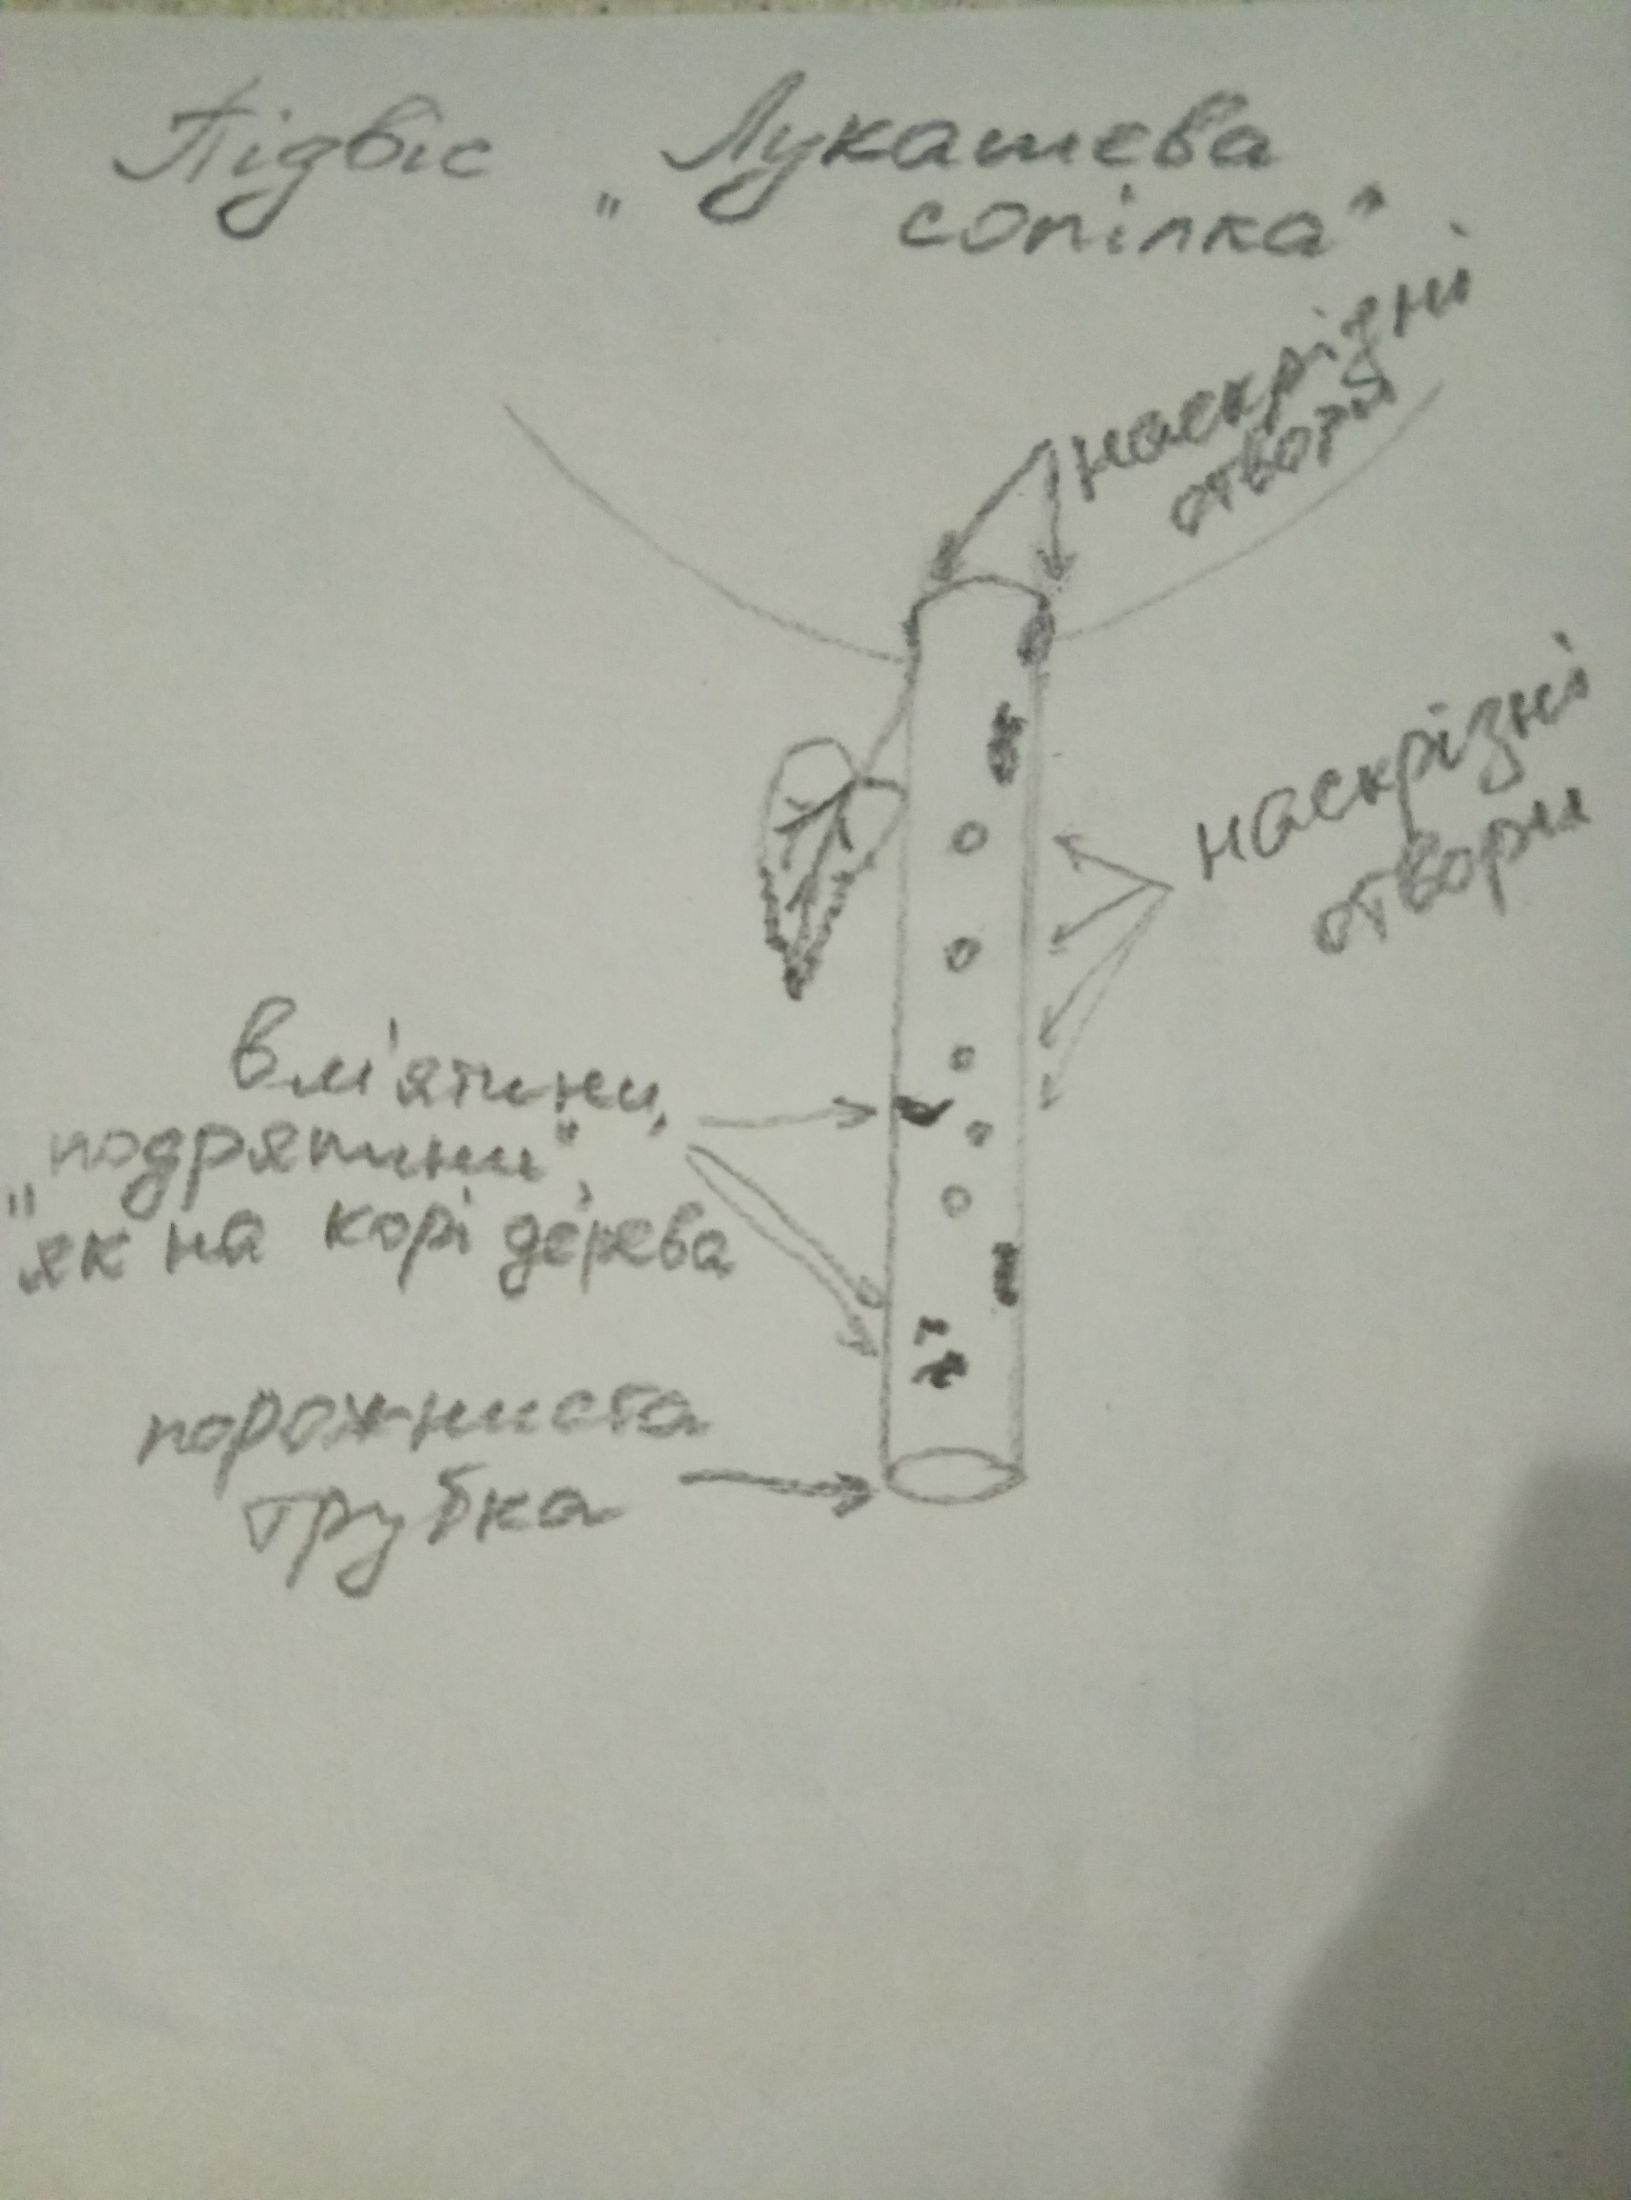 Підвіс „Лукашева
сопілка”
наскрізні
отвори
наскрізні
отвори
вм'ятини,
„подряпини”,
як на корі дерева
порожниста
трубка